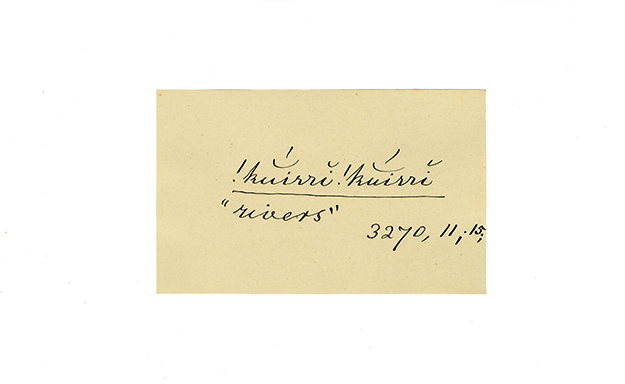 !kúĭrrĭ !kúĭrrĭ
"rivers"
3270, 11, 15,